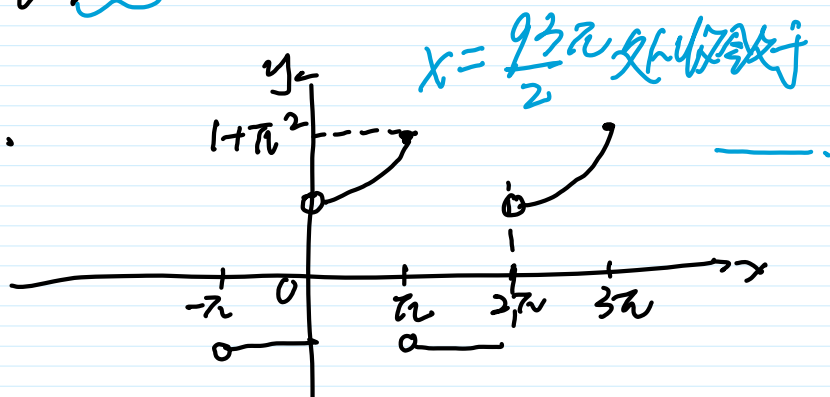 x = 93π/2 处收敛于
y
1+π²
-π 0 π 2π 3π x